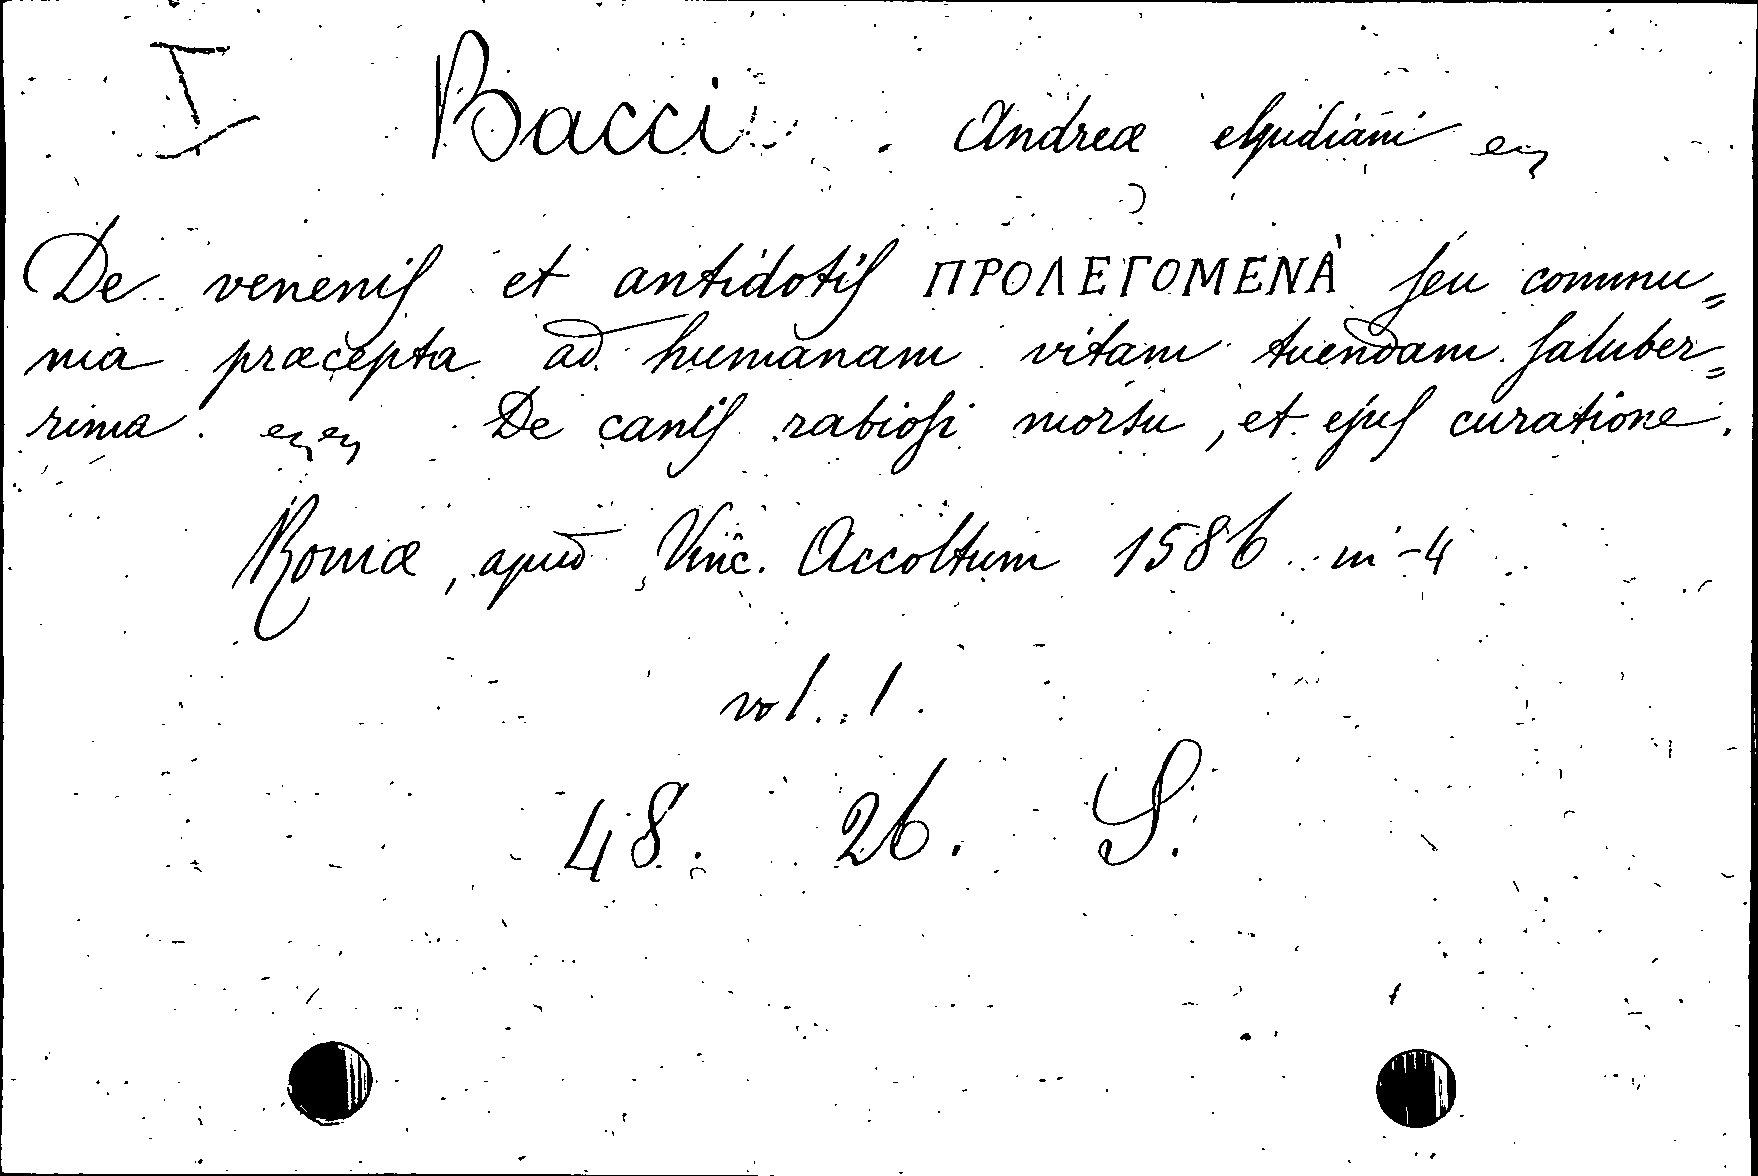 I Bacci. Andreæ elpidiani &c
De veneniſ et antidotiſ ΠΡΟΛΕΓΟΜΕΝÀ ſeu commu=
nia præcepta ad humanam vitam tuendam ſaluber=
rima. &c &c De caniſ rabioſi morsu, et ejuſ curatione.
Romæ, apud Vinc. Accoltum 1586 in-4
vol. 1.
48. 26. S.